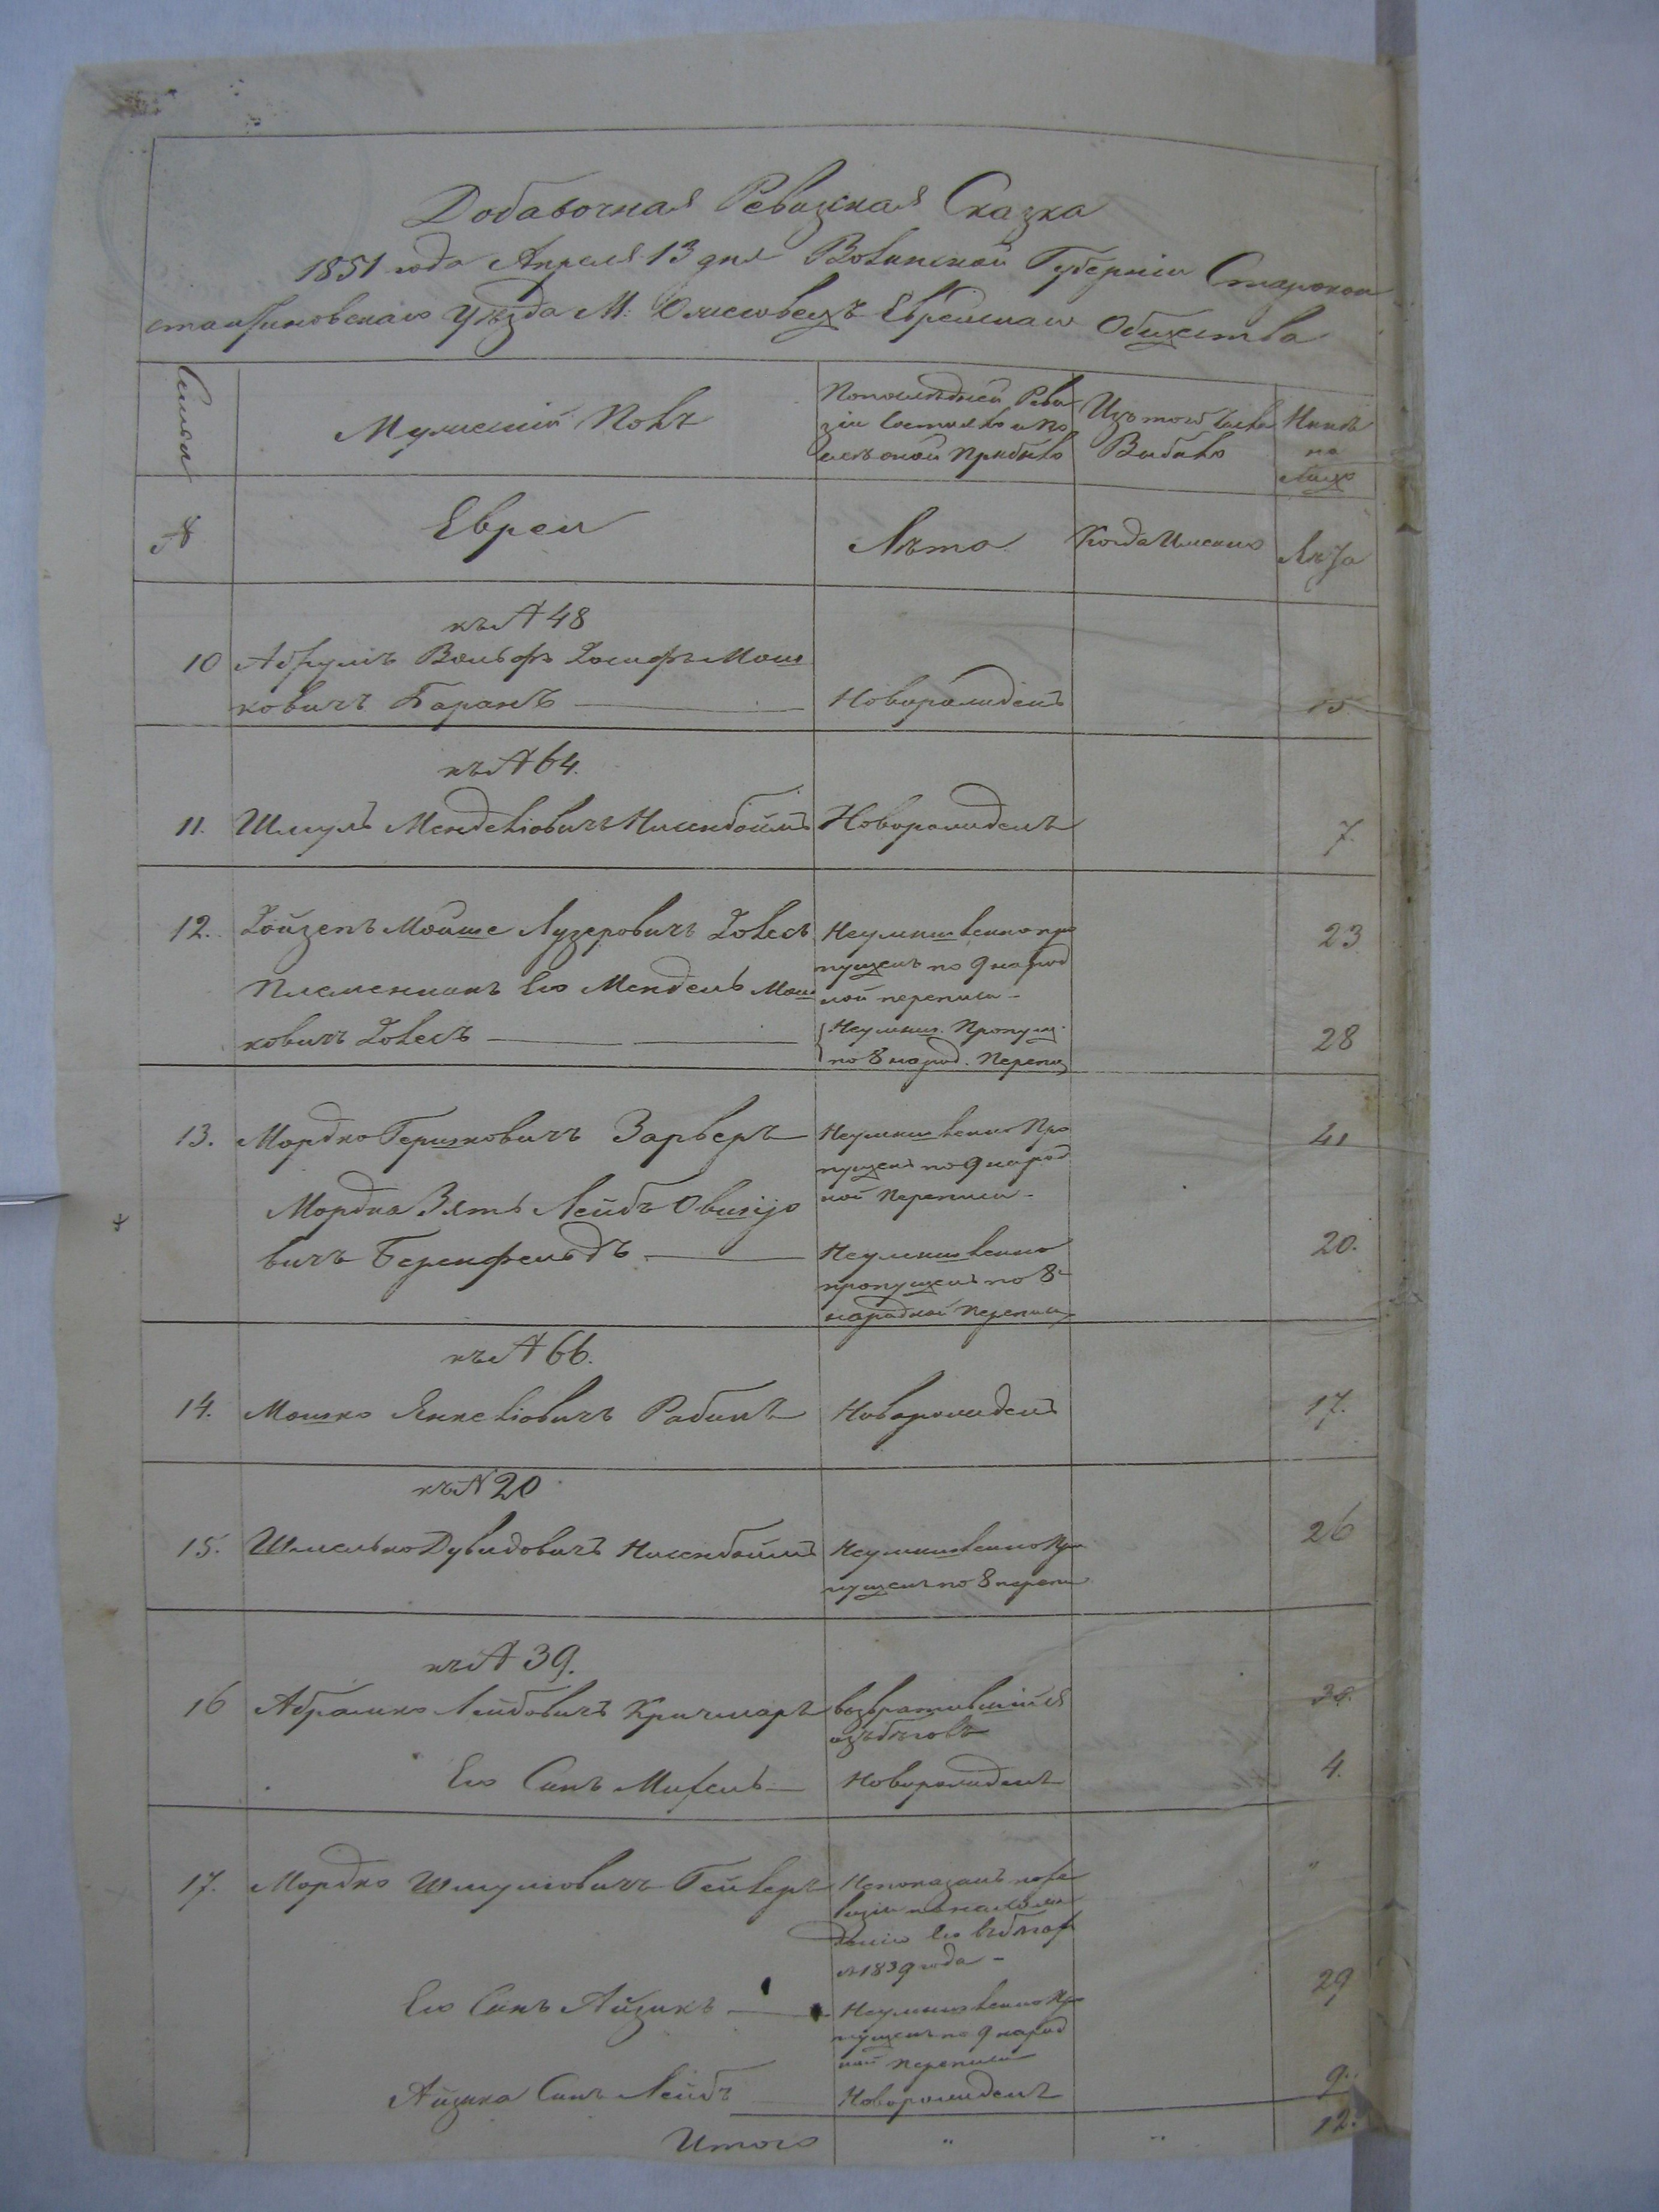 Добавочная Ревизская Сказка
1851 года Апреля 13 дня Волынской Губерніи Старокон
стантиновскаго Уѣзда М: Еврейскаго Общества
Семья
Мужескій Полъ
По послѣдней Реви
зіи состояло и по
слѣ оной прибыло
Изъ того числа
Выбыло
Нынѣ
на
лицо
№
Евреи
Лѣта
Когда Именно
Лѣта
къ № 48
10 Абрумъ Вольфъ Іосифъ Мош
ковичъ Баранъ Новорожденъ
къ № 64.
11. Шмуль Менделіовичъ Нисенбоймъ Новорожденъ 7.
12. Мойше Лузеровичъ Неумышленно про 23
пущенъ по 9 народ
Племенникъ Его Мендель Мош
ной переписи
ковичъ Неумыш. Пропущ. 28
по 8 народ. Перепи
13. Мордко Гершковичъ Зарверъ Неумышленно Про 41
пущенъ по 9 народ
ной Переписи
Мордка Зять Лейбъ Овшіо
вичъ Беренфельдъ Неумышленно 20.
пропущенъ по 8
народной Переписи
къ № 66.
14. Мошко Янкеліовичъ Рабинъ Новорожденъ 17.
къ № 20
15. Шмелько Дувидовичъ Нисенбоймъ Неумышленно Про 26
пущенъ по 8 перепи
къ № 39.
16 Абрамко Лейбовичъ Кричмаръ возвратившійся
изъ бѣговъ
Его Сынъ Михель Новорожденъ 4.
17. Мордко Шмуліовичъ Непоказанъ по ре "
визіи по нахож
денію Его въ бѣгах
съ 1839 года
Его Сынъ Айзикъ Неумышленно Про 29
пущенъ по 9 народ
ной переписи
Айзика Сынъ Лейбъ Новорожденъ 9.
Итого " " 12.